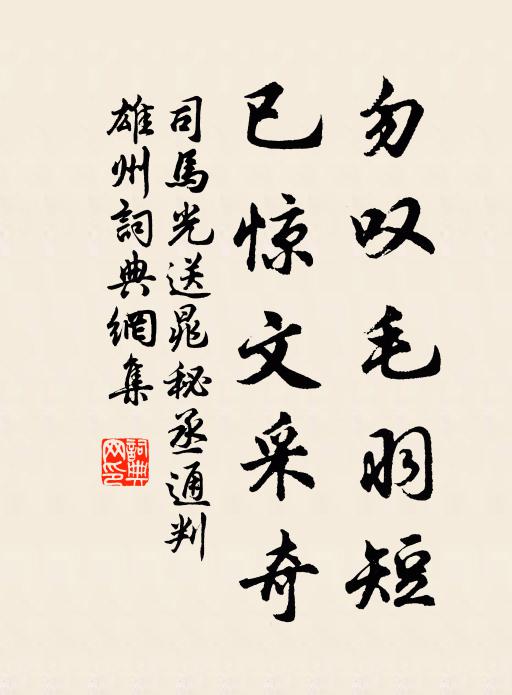 勿叹毛羽短
已惊文采奇
司馬光送晁秘丞通判
雄州詞典網集
詞典
网印